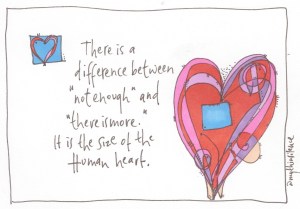 There is a
difference between
"not enough" and
"there is more."
It is the size of the
Human heart.